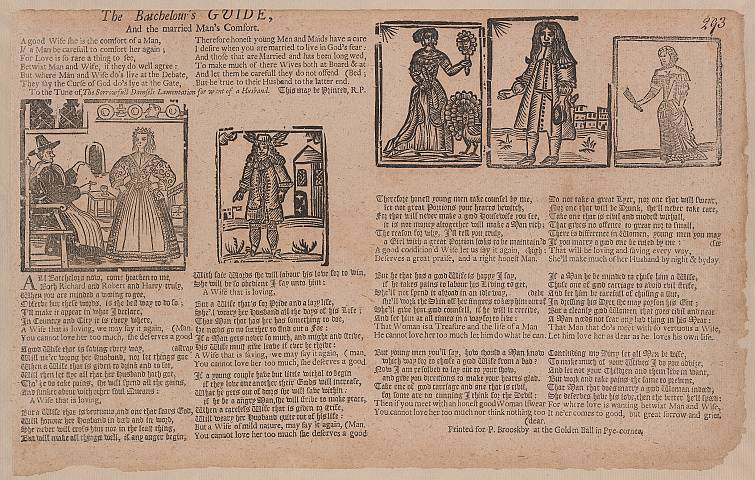 The Batchelour's GUIDE,
And the married Man's Comfort.
293
A good Wife she is the comfort of a Man,
If a Man be carefull to comfort her again;
For Love is so rare a thing to see,
Betwixt Man and Wife, if they do well agree:
But where Man and Wife do's live at the Debate,
They say the Curse of God do's lye at the Gate,
Therefore honest young Men and Maids have a care
I desire when you are married to live in God's fear:
And those that are Married and has been long wed,
To make much of there Wives both at Board & at
And let them be carefull they do not offend (Bed;
But be true to their Husband to the latter end.
To the Tune of, The Sorrowfull Damsels Lamentation for want of a Husband. This may be Printed, R.P.
ALl Batchelors now, come hearken to me,
Both Richard and Robert and Harry truly,
When you are minded a wooing to goe,
I'll make it appear in what I declare,
In Country and City it is every where,
A Wife that is loving, we may say it again, (Man.
You cannot love her too much, she deserves a good
A good Wife that is saving every way,
When a Wife that is given to drink and to sot,
Will then sell the all that her Husband hath got,
Tho' he do take pains, she will spend all the gains,
A Wife that is loving,
But a Wife that is vertuous, and one that fears God,
Will honour her Husband in bed and in word,
She never will cross him not in the least thing,
But will make all things well, if any anger bring,
With soft Words she will labour his love for to win,
She will be so obedient I say unto him:
A Wife that is loving,
But a Wife that's for Pride and a lazy life,
She'll weary her Husband all the days of his Life;
That Man that has her has something to doe,
If a Man gets never so much, and might and strive,
His Wife must give leave if ever he thrive:
A Wife that is saving, we may say it again, ( man,
You cannot love her too much, she deserves a good
If a young couple have but little withal to begin
if they love one another their Goods will increase,
What he gets out of doors she will save within:
if he be a angry Man, she will strive to make peace,
When a careless Wife that is given to strife,
Will weary her Husband quite out of his life:
But a Wife of mild nature, may say it again, (Man.
You cannot love her too much she deserves a good
Therefore honest young men take counsel by me,
let not great Portions your hearts bewitch,
For that will never make a good Housewife you see,
it is not money altogether will make a Man rich;
The reason for why, I'll tell you truly,
a Girl with a great Portion looks to be maintain'd
A good condition'd Wife let us say it again, (high:
Deserves a great praise, and a right honest Man.
But he that has a good Wife is happy I say,
if he takes pains to labour his Living to get,
She'll not spend it abroad in an idle way,
She'll give him good counsell, if he will receive it,
And be him at all times in a way for to live:
That Woman is a Treasure and the life of a Man
He cannot love her too much let him do what he can.
But young men you'll say, how should a Man know
which way for to chuse a good Wife from a bad:
Now I am resolved to lay out to your show,
and give you directions to make your hearts glad.
Take one of good carriage and one that is civil,
for some are so cunning I think for the Devil:
Then if you meet with an honest good Woman I swear
You cannot love her too much nor think nothing too
(dear.
Do not take a great Lyer, nor one that will swear,
Nor one that will be Drunk, she'll never take care,
Take one that is civil and modest withall,
That gives no offence to great nor to small,
There is difference in Women, young men you may
If you marry a good one be ruled by me: (see
That will be loving and saving every way,
She'll make much of her Husband by night & by day.
If a Man be minded to chuse him a Wife,
Chuse one of good carriage to avoid evil strife,
And let him be carefull of chusing a slut,
But a cleanly good Woman that goes east and near
A Man needs not fear any bad thing in his Year:
That Man that do's meet with so vertuous a Wife,
Let him love her as dear as he loves his own life.
Concluding my Ditty let all Men be wise,
To make much of your Wives I do you advise,
And let not your Children and them live in want,
But work and take pains the same to prevent,
That Man that does marry a good Woman indeed,
She deserves half his love, then the better he'll speed:
For where love is wanting betwixt Man and Wife,
It ne'er comes to good, but great sorrow and grief.
Printed for P. Brooksby at the Golden Ball in Pye-corner,